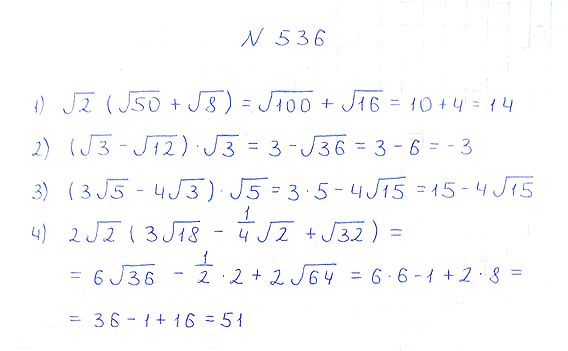 N 536
1) √2 (√50 + √8) = √100 + √16 = 10 + 4 = 14
2) (√3 - √12) · √3 = 3 - √36 = 3 - 6 = -3
3) (3√5 - 4√3) · √5 = 3 · 5 - 4√15 = 15 - 4√15
4) 2√2 (3√18 - 1/4 √2 + √32) =
= 6√36 - 1/2 · 2 + 2√64 = 6 · 6 - 1 + 2 · 8 =
= 36 - 1 + 16 = 51